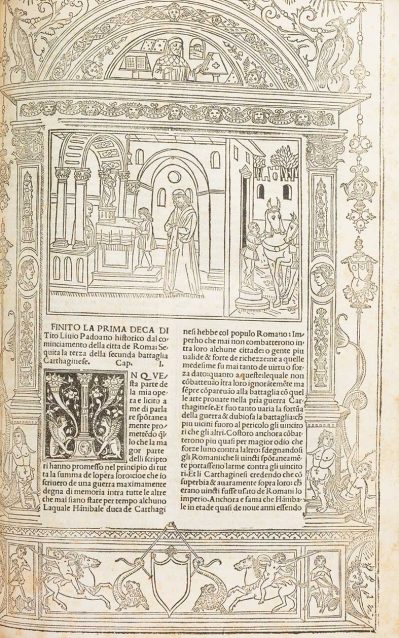 FINITO LA PRIMA DECA DI
Tito Liuio Padoano historico dal co
minciamento della citta de Roma: Se
quita la terza della secunda battaglia
Carthaginese. Cap. I.
IN QVE
sta parte de
la mia ope
ra e licito a
me di parla
re spōtanea
mente pro
metēdo ql
lo che la ma
gor parte
delli scripto
ri hanno promesso nel principio di tut
ta la summa de lopera loro: cioe che io
scriuero de una guerra maximamente
degna di memoria intra tutte le altre
che mai siano state per tempo alchuno
Laquale Hānibale duca de Carthagi
nesi hebbe col populo Romano: Im
perho che mai non combatterono in
tra loro alchune cittade: o gente piu
ualide & forte de richezze: ne a quelle
medesime fu mai tanto de uirtu o for
za dato: quanto a queste: lequale non
cōbatteuāo itra loro ignorātemēte ma
sēpre cōpareuāo alla battaglia cō quel
le arte prouate nella pria guerra Car
thaginese. Et fuo tanto uaria la fortūa
della guerra & dubiosa la battaglia: che
piu uicini fuoro al periculo gli uincti
ri che gli altri. Costoro anchora cōbat
terono piu quasi per magior odio che
forte luno contra laltro: sdegnandosi
gli Romani che li uincti spōtaneamē
te portasseno larme contra gli uincto
ri. Et li Carthaginesi credendo che cō
superbia & auaramente sopra loro: ch
erano uinti fusse usito de Romani lo
imperio. Anchora e fama che Hāniba
le in etade quasi de noue anni essendo